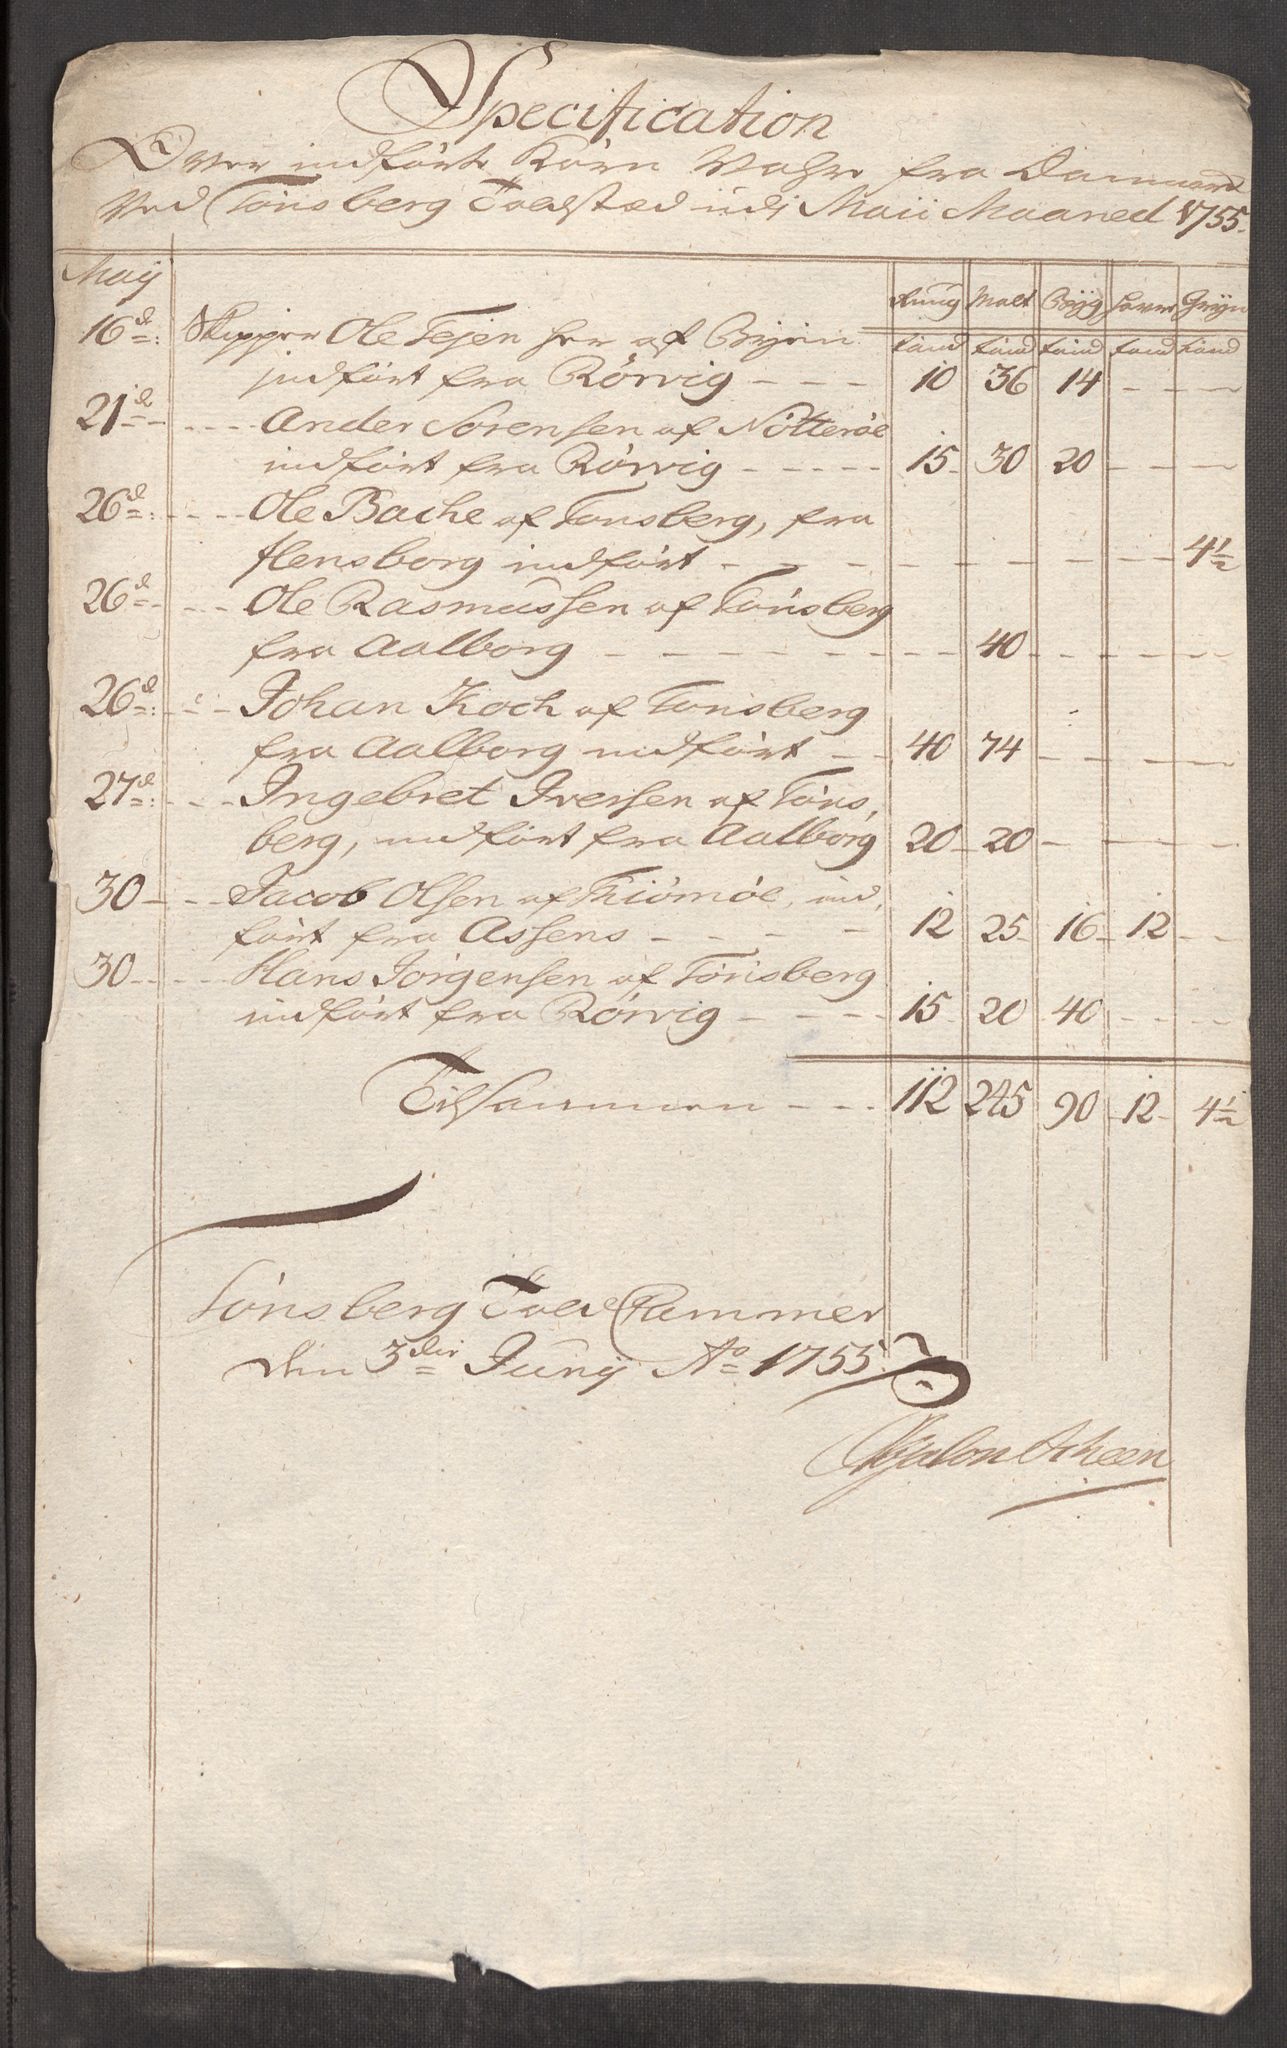 Specification
Over indførte Korn Vahre fra Danmard
Ved Tønsberg Toldsted udi Maii Maaned 1755.
May
Rung Malt Bÿg Haver Grÿn
tønd tønd tønd tønd tønd
16d: Skipper Ole Tejen her af Byen
indført fra Rörvig - - - 10 36 14 - -
21d - - - Ander Sörensen af Nötteröe
indfört fra Rörvig - - - - 15 30 20 - -
26d: - - - Ole Bache af Tonsberg, fra
flensborg indfört - - - - - - - 4½
26d - - - Ole Rasmussen af Tönsberg
fra Aalborg - - - - - 40 - - -
26d: - - Johan Koch af Tönsberg
fra Aalborg indfört - - 40 74 - - -
27d: - - Ingebret Iversen af Töns,
berg, indfört fra Aalborg 20 20 - - -
30 - - - Jacob Olsen af Thiömöe, ind,
fört fra Assens - - - - 12 25 16 12 - -
30 - - - Hans Jörgensen af Tönsberg
indfört fra Rörvig - - - - 15 20 40 - - -
Tilsammen - - - 112 245 90 12 4½
Tönsberg Told Cammer
den 3die Junÿ Ao 1755